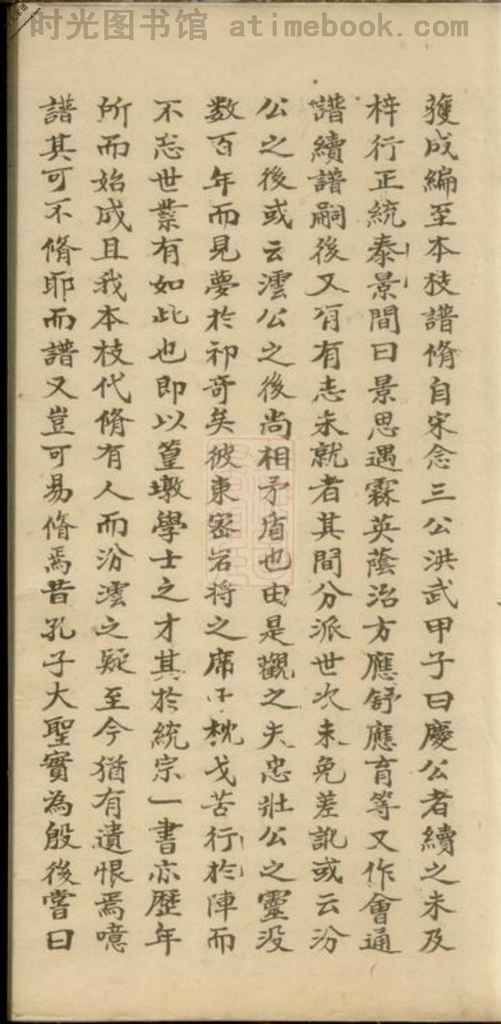 时光图书馆 atimebook.com
獲成編至本枝譜脩自宋念三公洪武甲子曰慶公者續之未及
梓行正統泰景間曰景思遇霖英蔭治方應舒應育等又作會通
譜續譜嗣後又有有志未就者其間分派世次未免差訛或云汾
公之後或云澐公之後尚相矛盾也由是觀之夫忠壯公之靈没
数百年而見夢於祁奇矣彼東密岩將之席下枕戈苦行於陣而
不忘世業有如此也即以篁墩學士之才其於統宗一書亦歷年
所而始成且我本枝代脩有人而汾澐之疑至今猶有遺恨焉噫
譜其可不脩耶而譜又豈可易脩焉昔孔子大聖實為殷後嘗曰